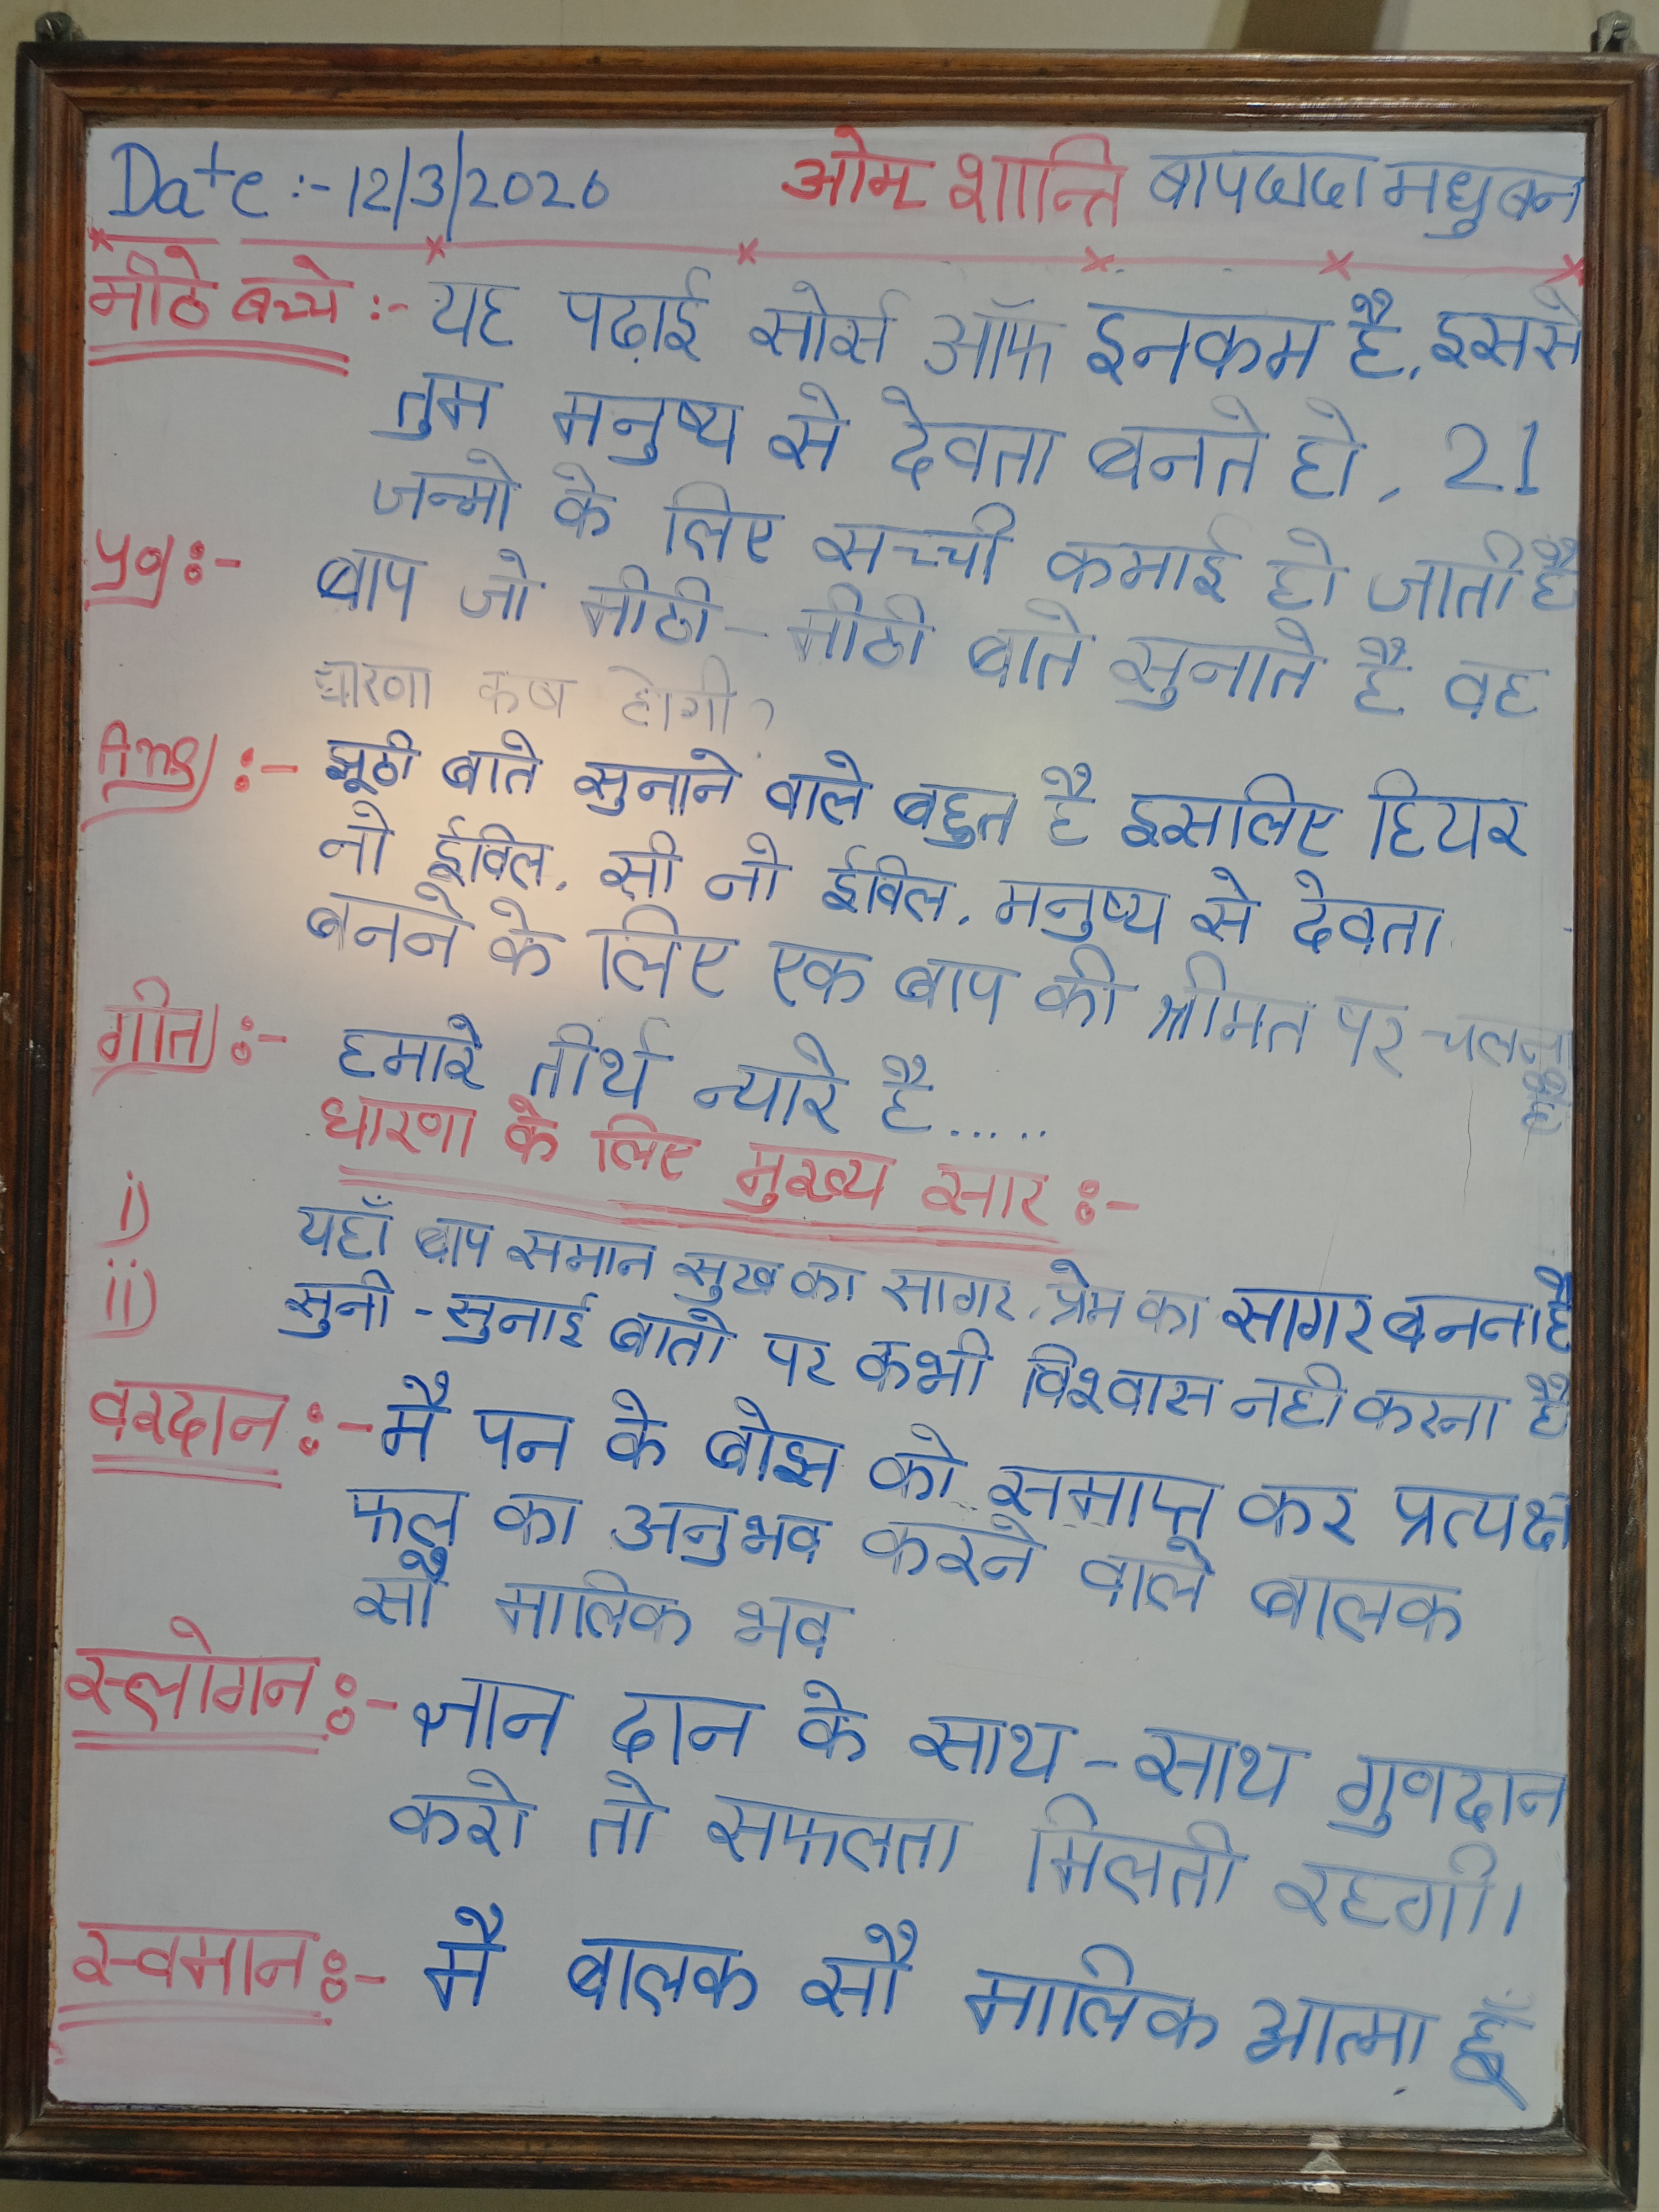 Date :- 12/3/2026 ओम शान्ति बापदादा मधुबन
मीठे बच्चे :- यह पढ़ाई सोर्स ऑफ इनकम है, इससे
तुम मनुष्य से देवता बनते हो, 21
जन्मो के लिए सच्ची कमाई हो जाती है
प्रश्न :- बाप जो मीठी - मीठी बाते सुनाते है वह
धारणा कब होगी?
Ans :- झूठी बाते सुनाने वाले बहुत है इसलिए हियर
नो ईविल, सी नो ईविल, मनुष्य से देवता
बनने के लिए एक बाप की श्रीमत पर चलना है
गीत :- हमारे तीर्थ न्यारे है.....
धारणा के लिए मुख्य सार :-
i) यहाँ बाप समान सुख का सागर, प्रेम का सागर बनना है
ii) सुनी - सुनाई बातो पर कभी विश्वास नही करना है
वरदान :- मै पन के बोझ को समाप्त कर प्रत्यक्ष
फल का अनुभव करने वाले बालक
सौ मालिक भव
स्लोगन :- ज्ञान दान के साथ - साथ गुणदान
करो तो सफलता मिलती रहगी।
स्वमान :- मै बालक सौ मालिक आत्मा हूँ